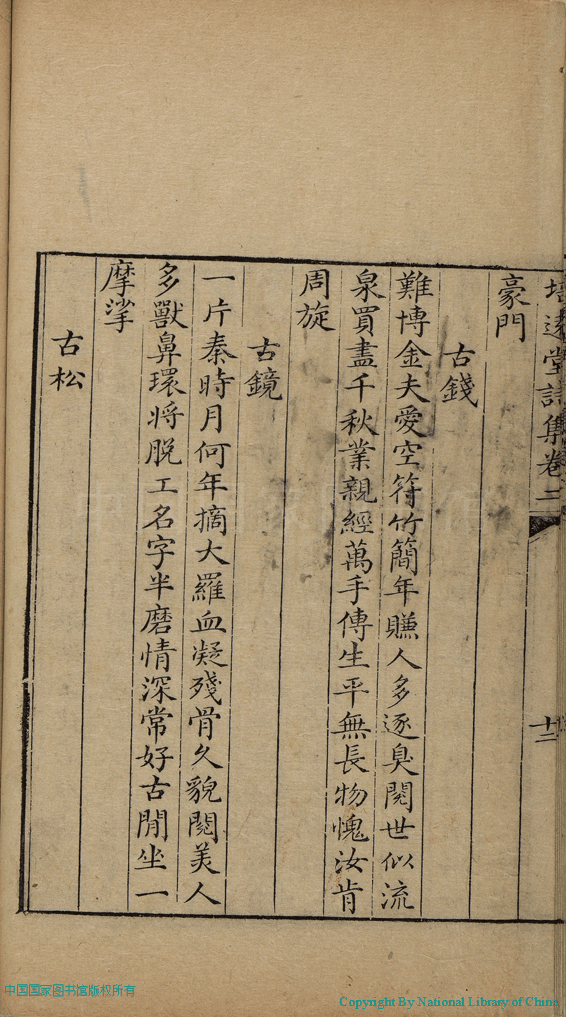 培遠堂詩集卷二
十二
豪門
古錢
難博金夫愛空符竹簡年賺人多逐臭閱世似流
泉買盡千秋業親經萬手傳生平無長物愧汝肯
周旋
古鏡
一片秦時月何年摘大羅血凝殘骨久貌閱美人
多獸鼻環將脫工名字半磨情深常好古閒坐一
摩挲
古松
中国国家图书馆版权所有
Copyright By National Library of China